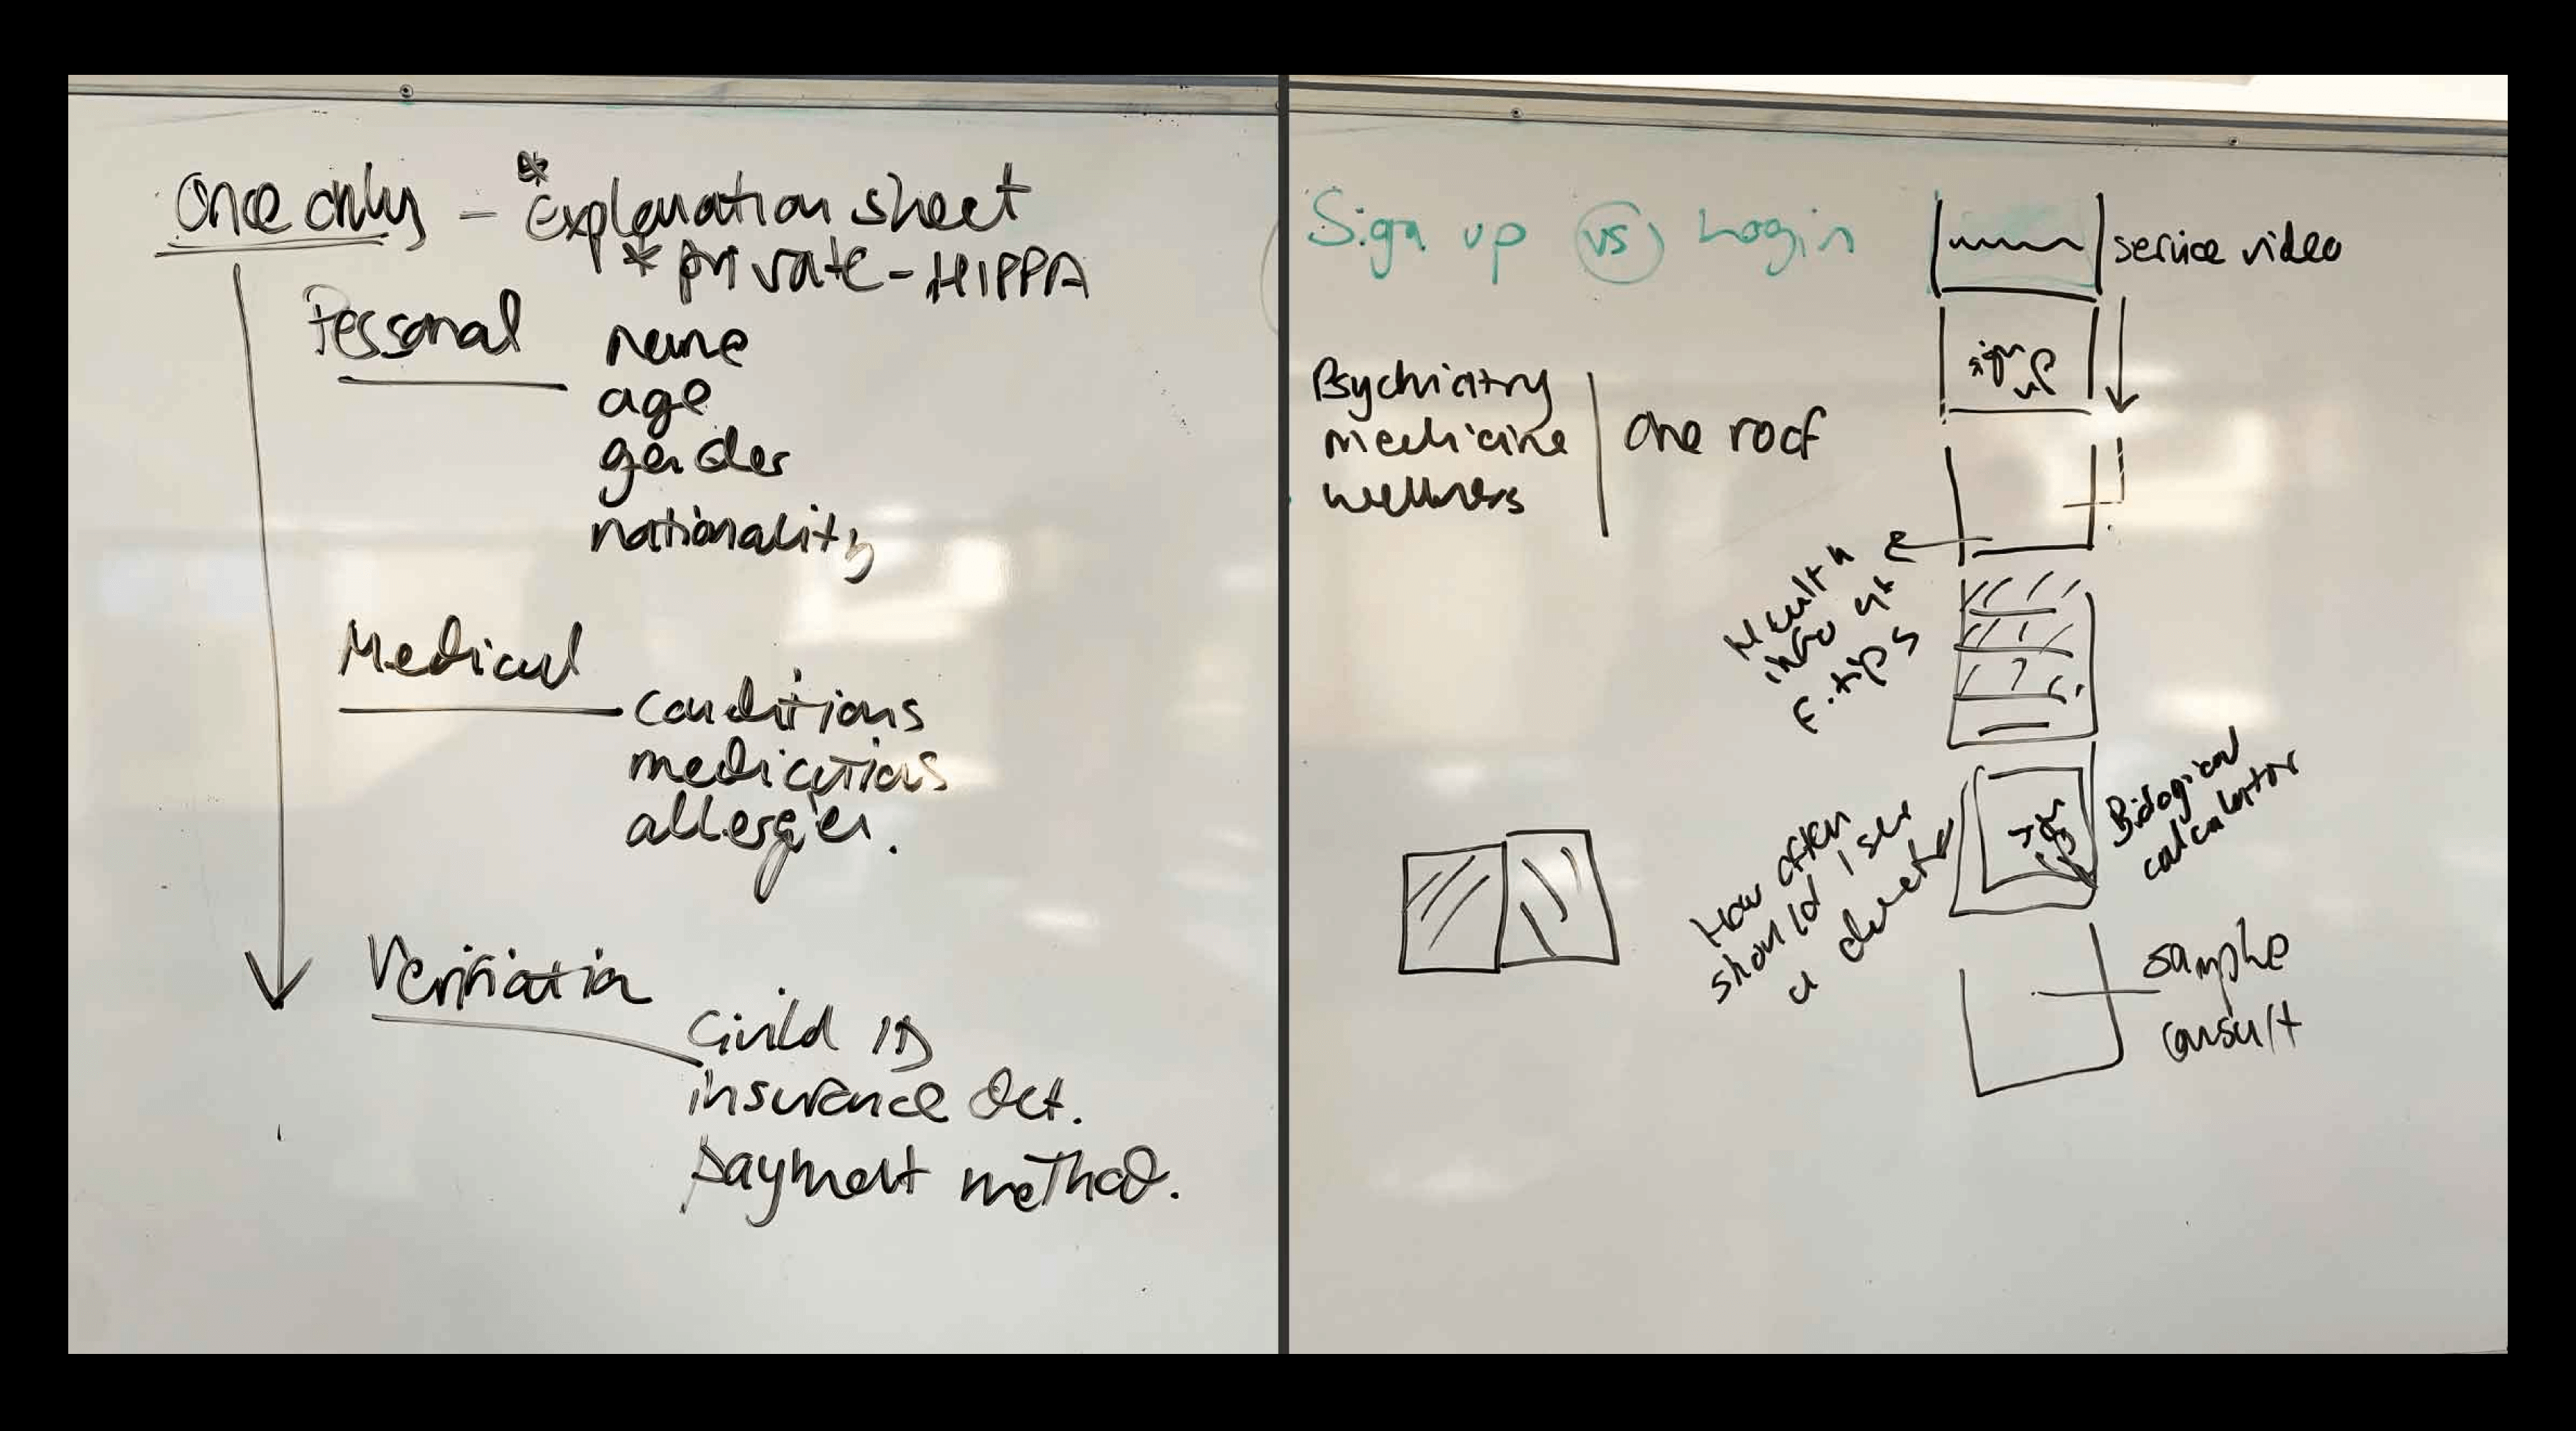 Once only - * Explanation sheet
* private - HIPPA
Personal
name
age
gender
nationality
Medical
conditions
medications
allergies.
Civild ID
insurance det.
payment method.
Sign up vs Login
service video
sign up
Psychiatry
medicine
wellness
one roof
Health
info
tips
How often
should I see
a
Biological
calculator
sign up
sample
consult